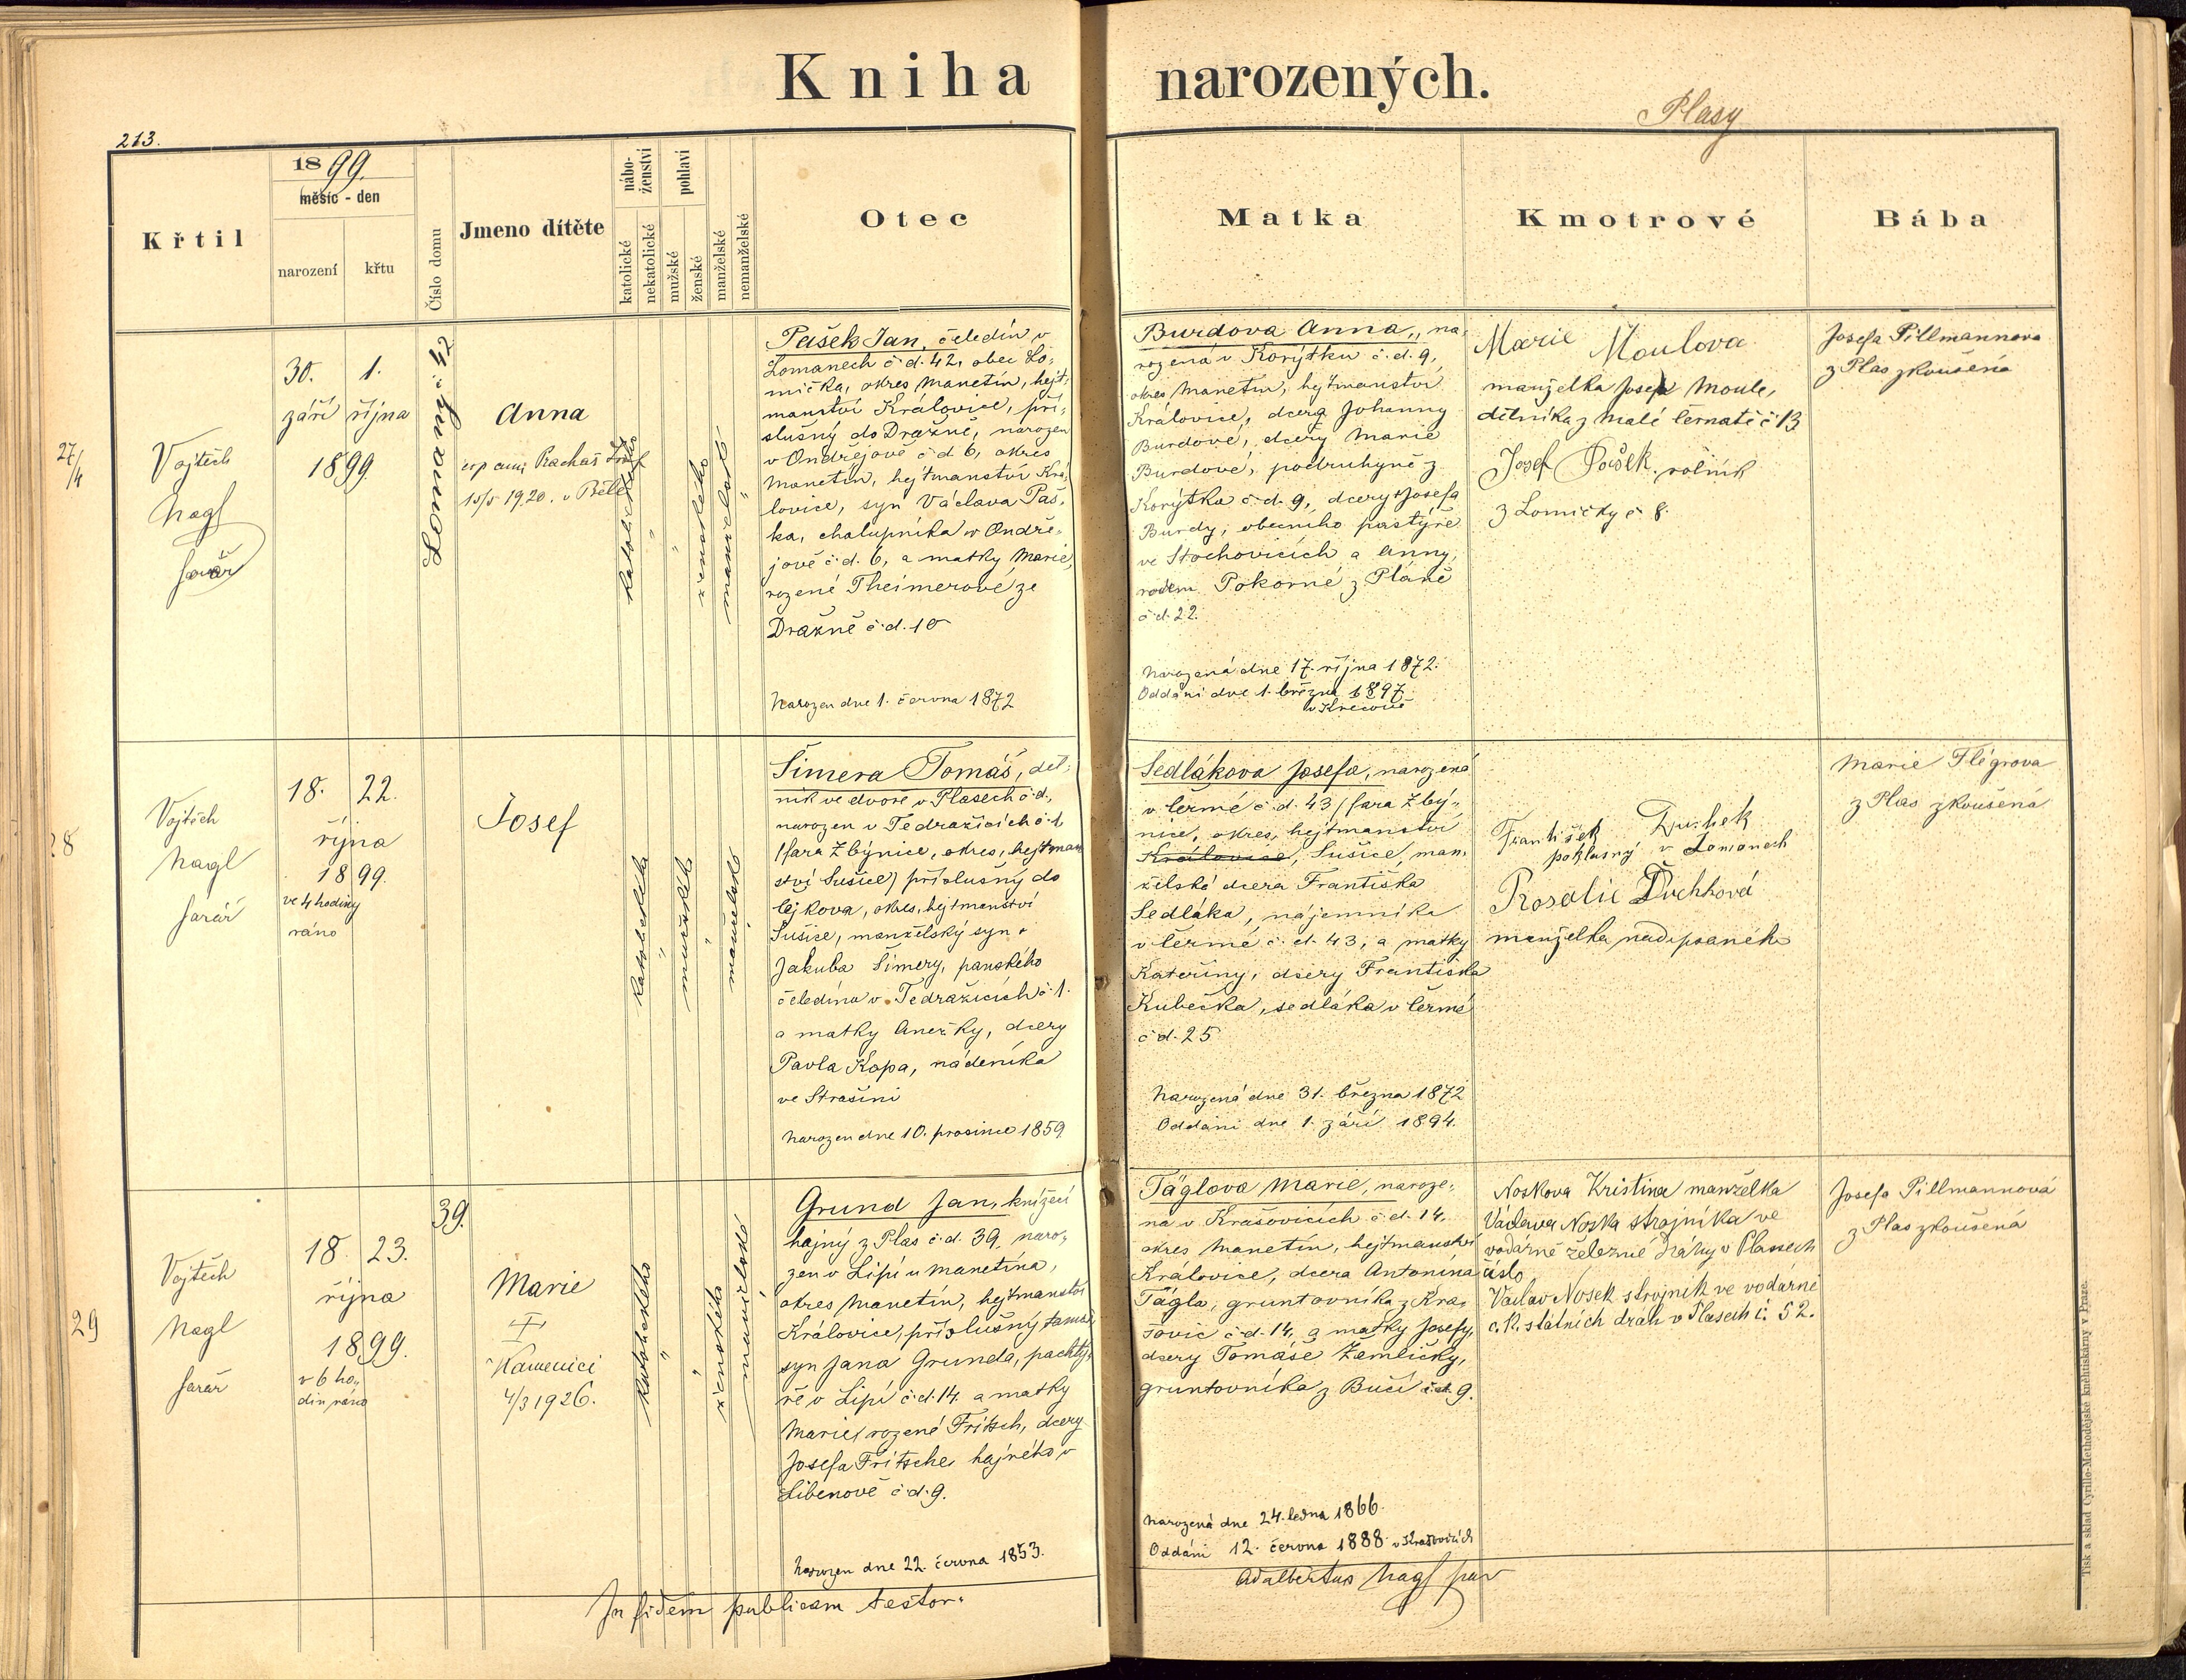 Kniha narozených.
Plasy
213.
Křtil
1899.
měsíc - den
narození
křtu
Číslo domu
Jmeno dítěte
nábo-
ženství
katolické
nekatolické
pohlaví
mužské
ženské
manželské
nemanželské
Otec
Matka
Kmotrové
Bába
27/4
Vojtěch
Nagl
farář
30. 1.
září října
1899.
Lomany č. 42
Anna
15/5 1920. v Bělé
katolického
ženského
manželské
Pašek Jan, čeledín v
Lomanech č.d. 42, obec Lo-
mička, okres Manetín, hejt-
manství Královice, pří-
slušný do Dražně, narozen
v Ondřejově č.d. 6, okres
Manetín, hejtmanství Krá-
lovice, syn Václava Paš-
ka, chalupníka v Ondře-
jově č.d. 6, a matky Marie,
rozené Theimerové ze
Dražně č.d. 10
Narozen dne 1. června 1872
Burdova Anna, na-
rozená v Korýtku č.d. 9,
okres Manetín, hejtmanství
Královice, dcera Johanny
Burdové, dcery Marie
Burdové, podruhyně z
Korýtka č.d. 9, dcery Josefa
Burdy, obecního pastýře
ve Stochovicích a Anny,
rodem Pokorné z Pláně
č.d. 22.
Narozená dne 17. října 1872.
Oddáni dne 1. března 1897.
Marie Moulova
manželka Josefa Moule,
dělníka z Malé Černatě č 13
Josef Pašek rolník
z Lomičky č 8.
Josefa Pillmannova
z Plas zkoušená
28
Vojtěch
Nagl
farář
18. 22.
října
1899.
ve 4 hodiny
ráno
Josef
katolického
mužského
manželské
Šimera Tomáš, děl-
ník ve dvoře v Plasech č.d.,
narozen v Tedražicích č. 1,
(fara Zbýnice, okres, hejtman-
ství Sušice) příslušný do
Čejkova, okres, hejtmanství
Sušice, manželský syn
Jakuba Šimery, panského
čeledína v Tedražicích č. 1.
a matky Anežky, dcery
Pavla Kopa, nádeníka
ve Strašíni
Narozen dne 10. prosince 1859
Sedlákova Josefa, narozená
v Čermé č.d. 43 (fara Zbý-
nice, okres, hejtmanství
Královice, Sušice, man-
želská dcera Františka
Sedláka, nájemníka
v Čermé č.d. 43, a matky
Kateřiny, dcery Františka
Kubečka, sedláka v Čermé
č.d. 25
Narozená dne 31. března 1872
Oddáni dne 1. září 1894.
František Duchek
poklasný v Lomanech
Rosalie Duchková
manželka nadepsaného
Marie Flégrova
z Plas zkoušená
29
Vojtěch
Nagl
farář
18. 23.
října
1899.
v 6 ho-
din ráno
39.
Marie
Kamenici
4/3 1926.
katolického
ženského
manželské
Grund Jan, knížecí
hajný z Plas č.d. 39, naro-
zen v Lipí u Manetína,
okres Manetín, hejtmanství
Královice, příslušný tamže,
syn Jana Grunda, pachtý-
ře v Lipí č.d. 14 a matky
Marie, rozené Fritsch, dcery
Josefa Fritsche, hajného v
Libenově č.d. 9.
Narozen dne 22. června 1853.
Täglova Marie, naroze-
na v Krašovicích č.d. 14.
okres Manetín, hejtmanství
Královice, dcera Antonína
Tägla, gruntovníka z Kra-
šovic č.d. 14, a matky Josefy,
dcery Tomáše Žemličky,
gruntovníka z Bučí č.d. 9.
Narozená dne 24. ledna 1866.
Oddáni 12. června 1888 v Krašovicích
Noskova Kristina manželka
Václava Noska strojníka ve
vodárně železné dráhy v Plasech
číslo
Václav Nosek strojník ve vodárně
c. k. státních drah v Plasech č. 52.
Josefa Pillmannová
z Plas zkoušená
In fidem publicam testor.
Adalbertus Nagl par
Tisk a sklad Cyrillo-Methodějské knihtiskárny v Praze.